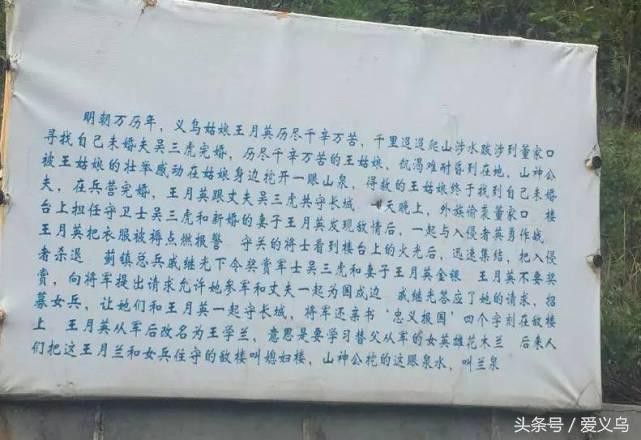 明朝万历年，义乌姑娘王月英历尽千辛万苦，千里迢迢爬山涉水跋涉到董家口
寻找自己未婚夫吴三虎完婚，历尽千辛万苦的王姑娘、饥渴难耐昏到在地，山神公
被王姑娘的壮举感动在姑娘身边挖开一眼山泉，得救的王姑娘终于找到自己未婚
夫，在兵营完婚，王月英跟丈夫吴三虎共守长城，天晚上，外族偷袭董家口 楼
台上担任守卫士吴三虎和新婚的妻子王月英发现敌情后，一起与入侵者英勇作战
王月英把衣服被褥点燃报警 守关的将士看到楼台上的火光后，迅速集结，把入侵
者杀退 蓟镇总兵戚继光下令奖赏军士吴三虎和妻子王月英金银 王月英不要奖
赏，向将军提出请求允许她参军和丈夫一起为国戍边 戚继光答应了她的请求，招
募女兵，让她们和王月英一起守长城，将军还亲书‘忠义报国’四个字刻在敌楼
上 王月英从军后改名为王学兰，意思是要学习替父从军的女英雄花木兰 后来人
们把这王月兰和女兵住守的敌楼叫媳妇楼，山神公挖的这眼泉水，叫兰泉
头条号／爱义乌